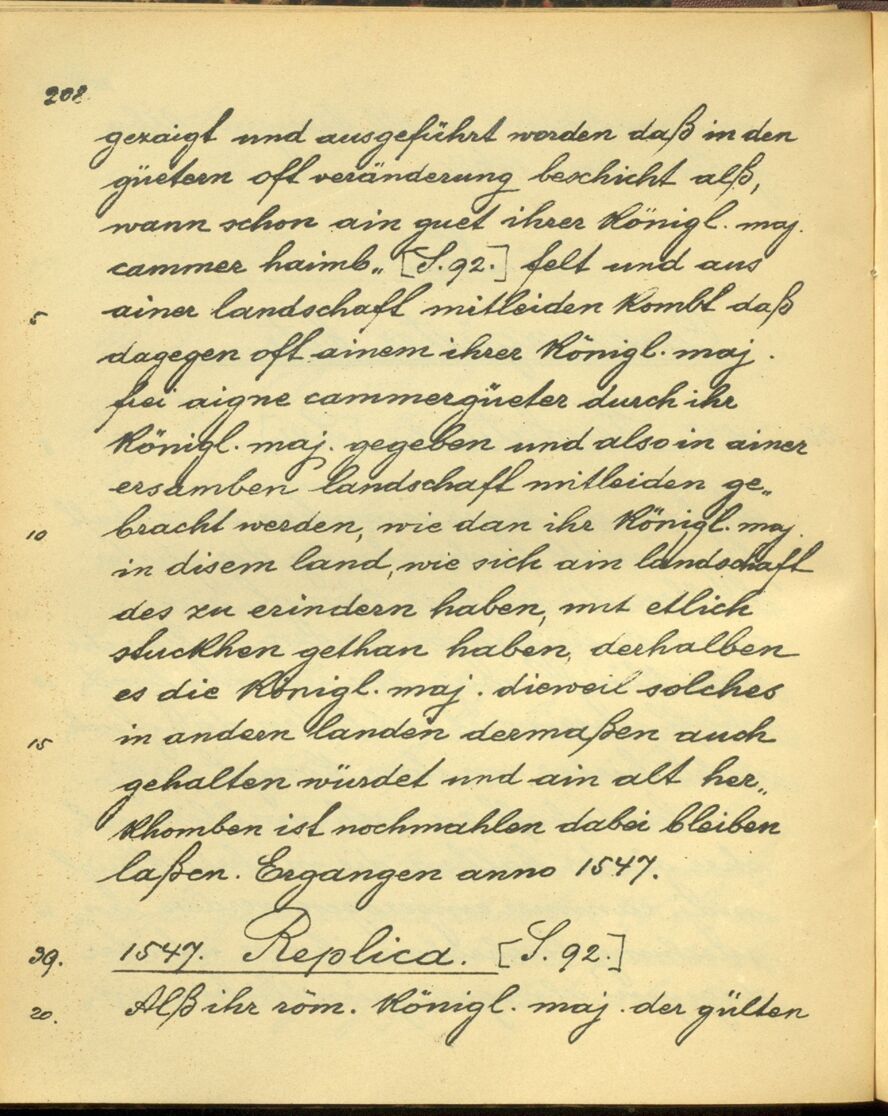 208
gezaigt und ausgeführt worden daß in den
güetern oft veränderung beschicht alß,
wann schon ain guet ihrer Königl. maj.
cammer haimb„ [S. 92.] felt und aus
5 ainer landschaft mitleiden kombt daß
dagegen oft ainem ihrer Königl. maj.
frei aigne cammergüeter durch ihr
Königl. maj. gegeben und also in ainer
ersamben landschaft mitleiden ge„
10 bracht werden, wie dan ihr Königl. maj
in disem land, wie sich ain landschaft
des zu erindern haben, mit etlich
stuckhen gethan haben, derhalben
es die Königl. maj. dieweil solches
15 in andern landen dermaßen auch
gehalten würdet und ain alt her„
khomben ist nochmahlen dabei bleiben
laßen. Ergangen anno 1547.
39. 1547. Replica. [S. 92.]
20. Alß ihr röm. Königl. maj. der gülten